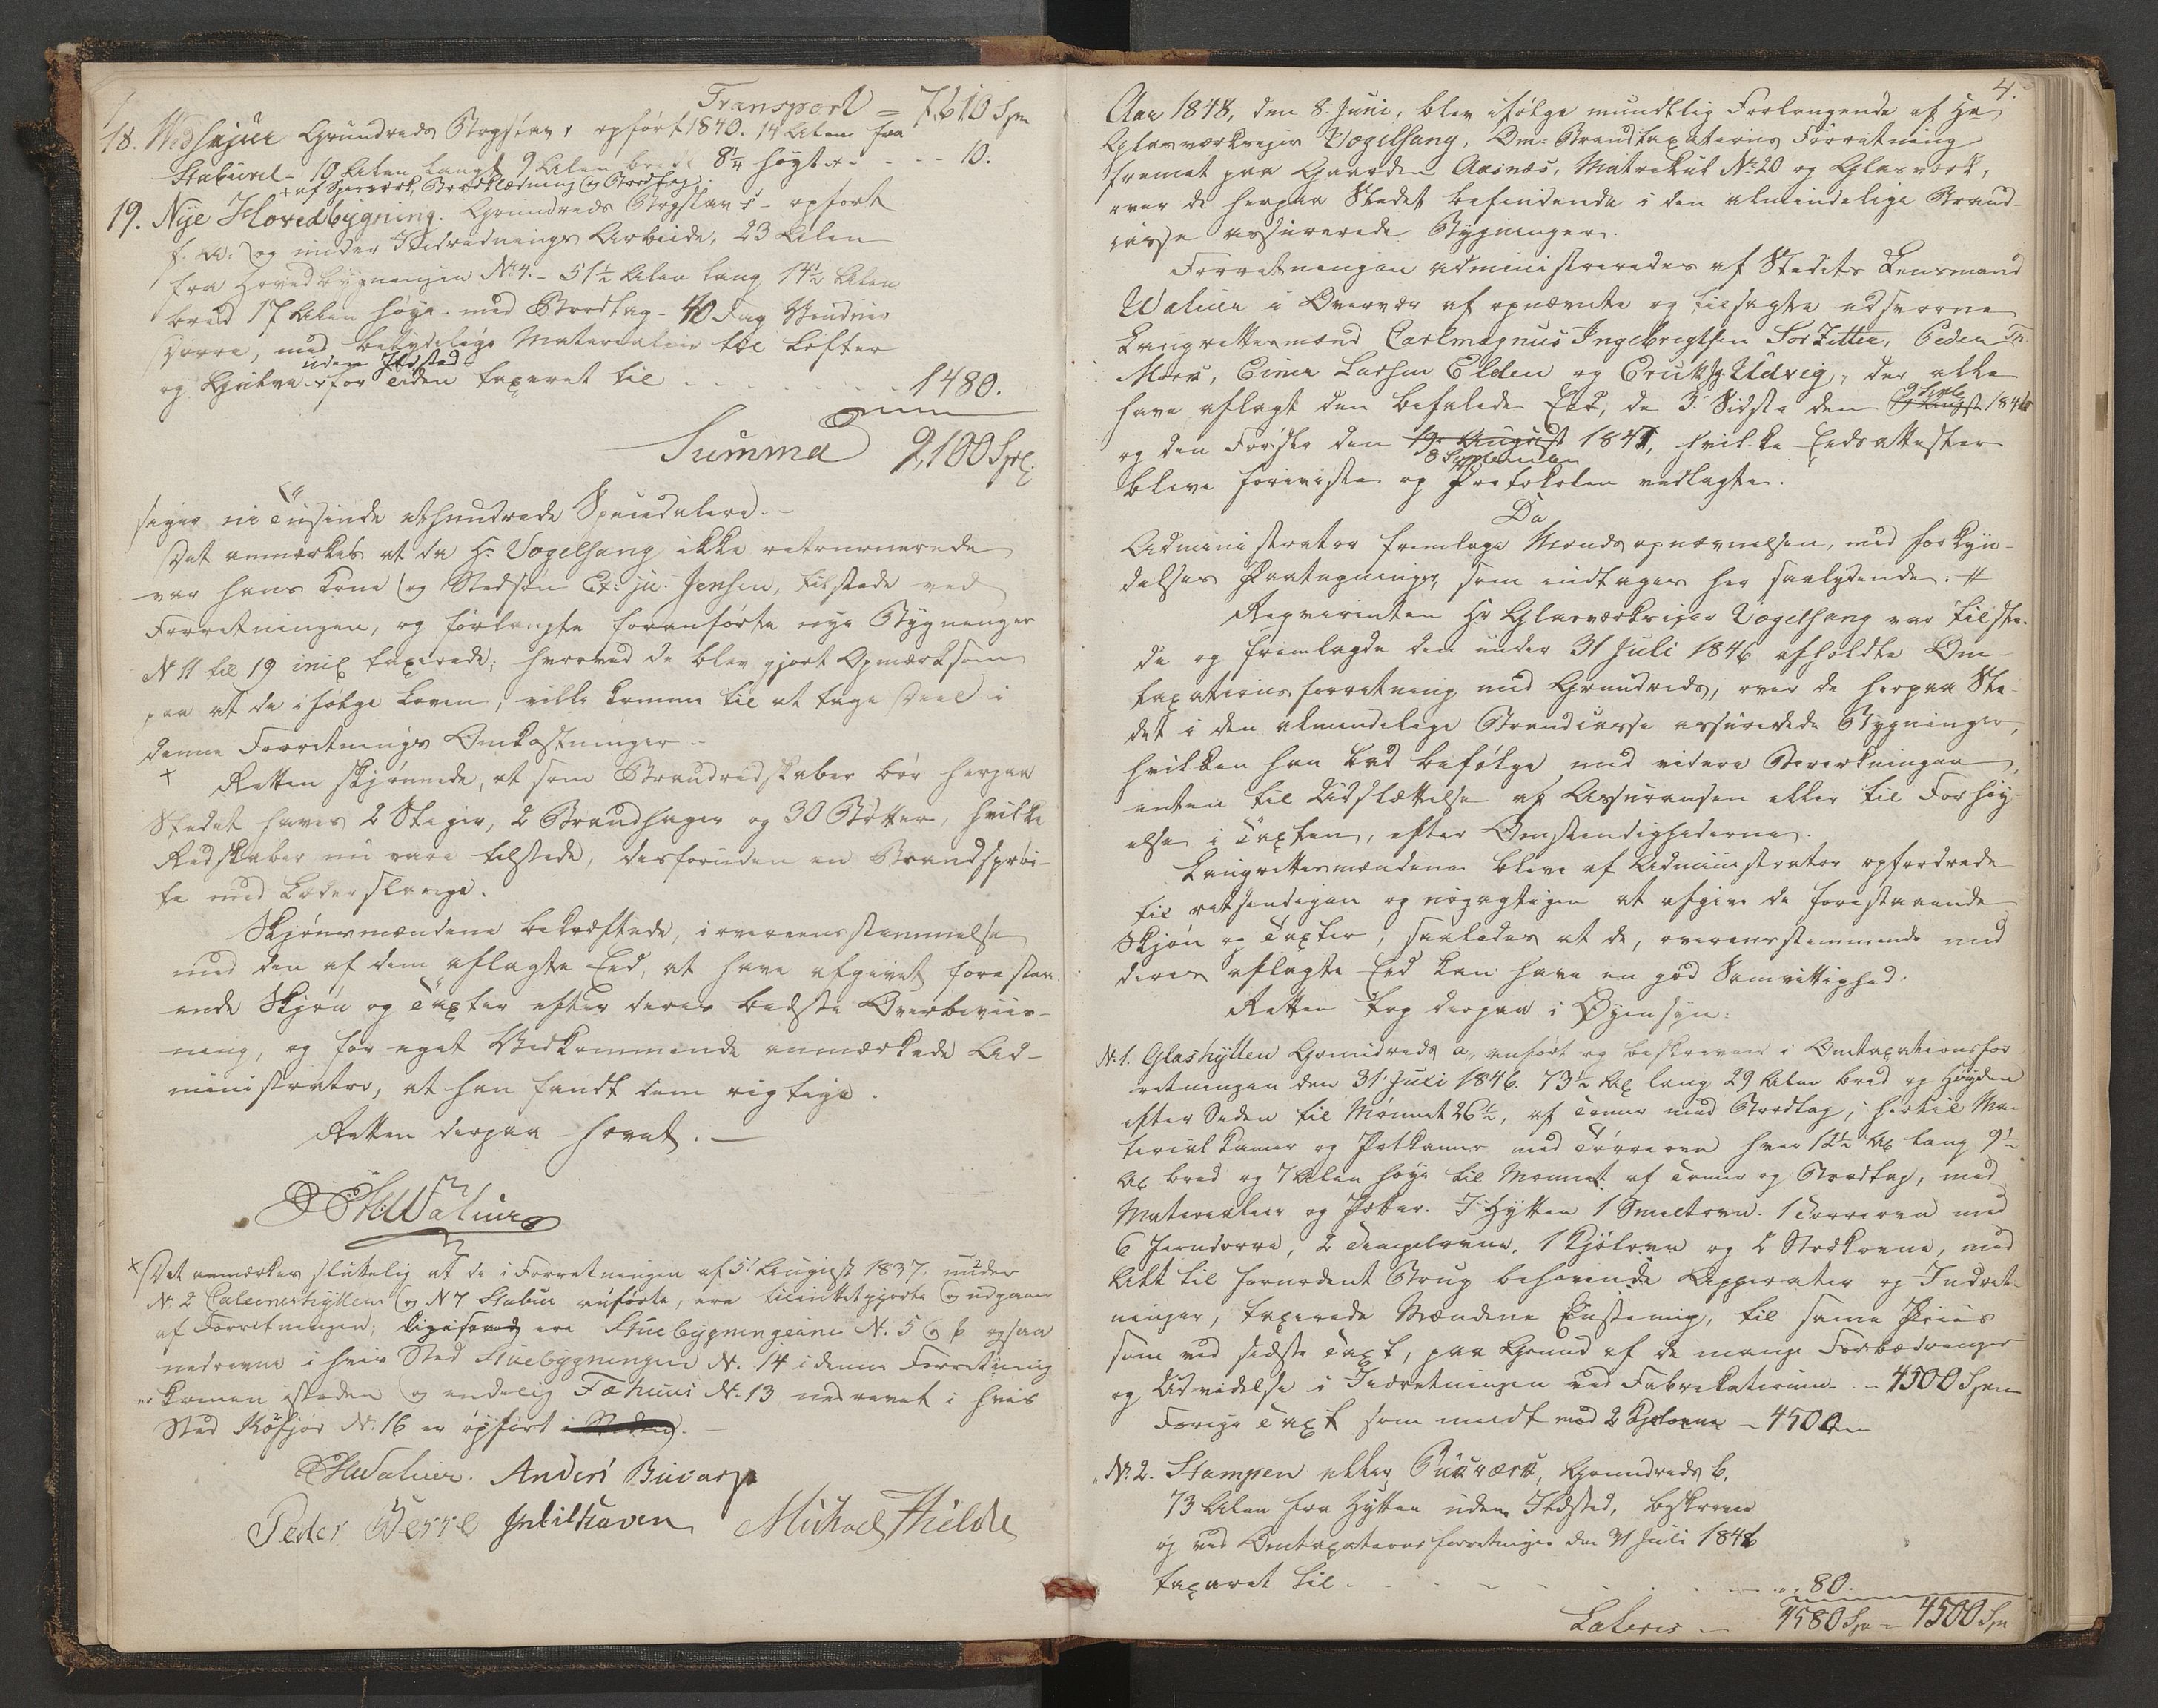 Transport = 7,610 Spm
18. Vedskjuer Grundrids Bogstav r opført 1840. 14 Alen fra
Staburet - 10 Alen langt 9 Alen bredt 8¼ høgt + - - - 10.
+ af Sperværk, Bordklædning og Bordtag.
19. Nye Hovedbygning. Grundrids Bogstav s - opført
og under Indrednings Arbeide, 23 Alen
fra Hovedbygningen No 4. - 51½ Alen lang 14½ Alen
bred 17 Alen høye - med Bordtag - 40 Fag Vinduer
Dørre, med betydelige Materialier til Lofter
uden Ildsted
og Gulve - for Tiden taxeret til - - - - - 1480.
Summa 9,100 Spd.
siger ni Tusinde et hundrede Speciedalere. -
Det anmærkes at da Hr Vogelsang ikke
var hans Kone og Stedsøn Ex: ju. Jensen, tilstede ved
Forretningen, og forlangte foranførte nye Bygninger
No 11 til 19 incl taxerede; hvorved de blev gjort Opmærksom
paa at de ifølge Loven, ville komme til at tage Deel i
denne Forretnings Omkostninger -
+ Retten skjønnede, at som Brandredskaber bør herpaa
Stedet haves 2 Stiger, 2 Brandhager og 30 Bøtter, hvilke
Redskaber nu vare tilstede, desforuden en Brandsprøi-
te med Læderslange.
Skjønsmændene bekræftede, i overeensstemmelse
med den af dem aflagte Eed, at have afgivet forestaa-
ende Skjøn og Taxter efter deres bedste Overbeviis-
ning, og for eget Vedkommende anmærkede Ad-
ministrator, at han fandt dem rigtige.
Retten derpaa hævet. -
Walnier
+ Det anmærkes sluttelig at de i Forretningen af 5t August 1837, under
No. 2 Calcinerhytten og No 7 Stabur anførte, ere tilintetgjorte og udgaaer
af Forretningen; ligesaa ere Stuebygningerne No. 5 og 6 ogsaa
nedrevne i hvis Sted Stuebygningen No. 14 i denne Forretning
er kommen isteden og endelig Fæhuus No. 13 nedrevet i hvis
Sted Kofjøs No. 16 er opført
Walnier. Anders Buvarp
Peder Werre Michael Hielde
4.
Aar 1848, den 8. Juni, blev ifølge mundtlig Forlangende af Hr
Glasværkseier Vogelsang, Om-Brandtaxations Forretning
fremet paa Gaarden Aasnæs, Matrikul No 20 og Glasværk,
over de herpaa Stedet befindende i den almindelige Brand-
casse assurerede Bygninger.
Forretningen administreredes af Stedets Lensmand
Walnier i Overvær af opnævnte og tilsagte edsvorne
Laugrettesmænd Carlmagnus Ingebregtsen Sor Zetter, Peder
Morø, Einer Larsen Elden og Udvig, der alle
have aflagt den befalede Eed, de 3. Sidste den 1846
og den Første den 19. August 1847, hvilke Eedsattester
8 September
bleve foreviste og Protokolen vedlagte.
Da
Administrator fremlagde Mandsopnævnelsen, med forkyn-
delses Paategninger, som indtages her saalydende: #
Reqvirenten Hr Glasværkseier Vogelsang var tilste-
de og fremlagde den under 31 Juli 1846 afholdte Om-
taxationsforretning med Grundrids, over de herpaa Ste-
det i den almindelige Brandcasse assurerede Bygninger,
hvilken han lod befølge med videre Bemerkninger,
enten til Udslættelse af Assurancen eller til Forhøy-
else i Taxten, efter Omstændighederne.
Laugrettesmændene bleve af Administrator opfordrede
til retsindigen og nøyagtigen at afgive de forestaaende
Skjøn og Taxter, saaledes at de, overensstemmende med
deres aflagte Eed kan have en god Samvittighed.
Retten tog derpaa i Øyensyn:
No. 1. Glashytten Grundrids a, anført og beskreven i Omtaxationsfor-
retningen den 31. Juli 1846. 73½ Al lang 29 Alen bred og Høyden
efter Siden til Mønnet 26½, af Tømer med Bordtag, hertil Ma-
terialkamer og Potkamer med Tørreovn hver 12½ Al lang 9½
Al bred og 7 Alen høye til Mønnet af Tømer og Bordtag, med
Materialier og Potter. I Hytten 1 Smelteovn. 1 Tørreovn med
6 Jerndørre, 2 Tempelovne, 1 Kjøleovn og 2 Strækovne, med
Alt til fornødent Brug behørende Apperater og Indret-
ninger, taxerede Mændene Enstemig, til samme Priis
som ved sidste Taxt, paa Grund af de mange Forbedringer
og Udvidelse i Indretningen ved Fabrikationen - - 4500 Spm
Forrige Taxt som meldt med 2 Kjøleovne - 4500 -
No. 2. Stampen eller Pukværk, Grundrids b.
73 Alen fra Hytten uden Ildsted, beskreven
og ved Omtaxationsforretningen den 31 Juli 1846
taxeret til - - - - - 80.
Lateris - 4580 Spm - 4500 Spm